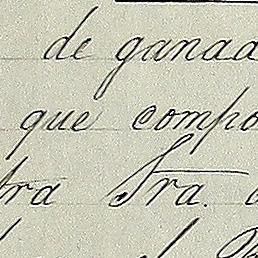 de ganad
que compo
tra Sra.